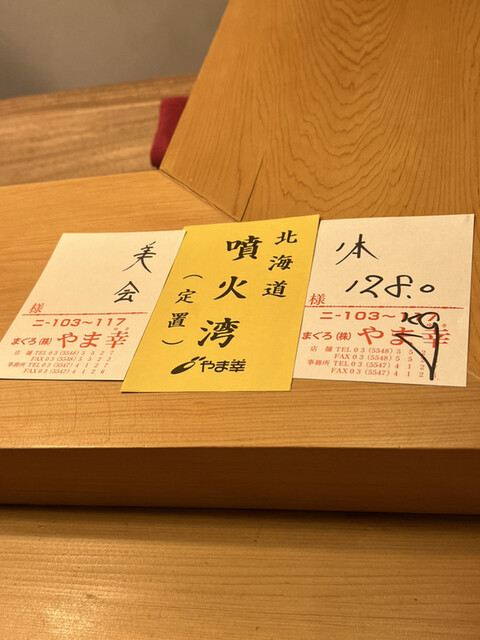 美会
様
ニ-103〜117
まぐろ(株)やま幸
店舗 TEL 03(5548)5527
FAX 03(5548)5552
事務所 TEL 03(5547)4127
FAX 03(5547)4128
北海道
噴火湾
(定置)
やま幸
128.0
様
ニ-103〜
まぐろ(株)やま幸
店舗 TEL 03(5548)55
FAX 03(5548)55
事務所 TEL 03(5547)412
FAX 03(5547)412